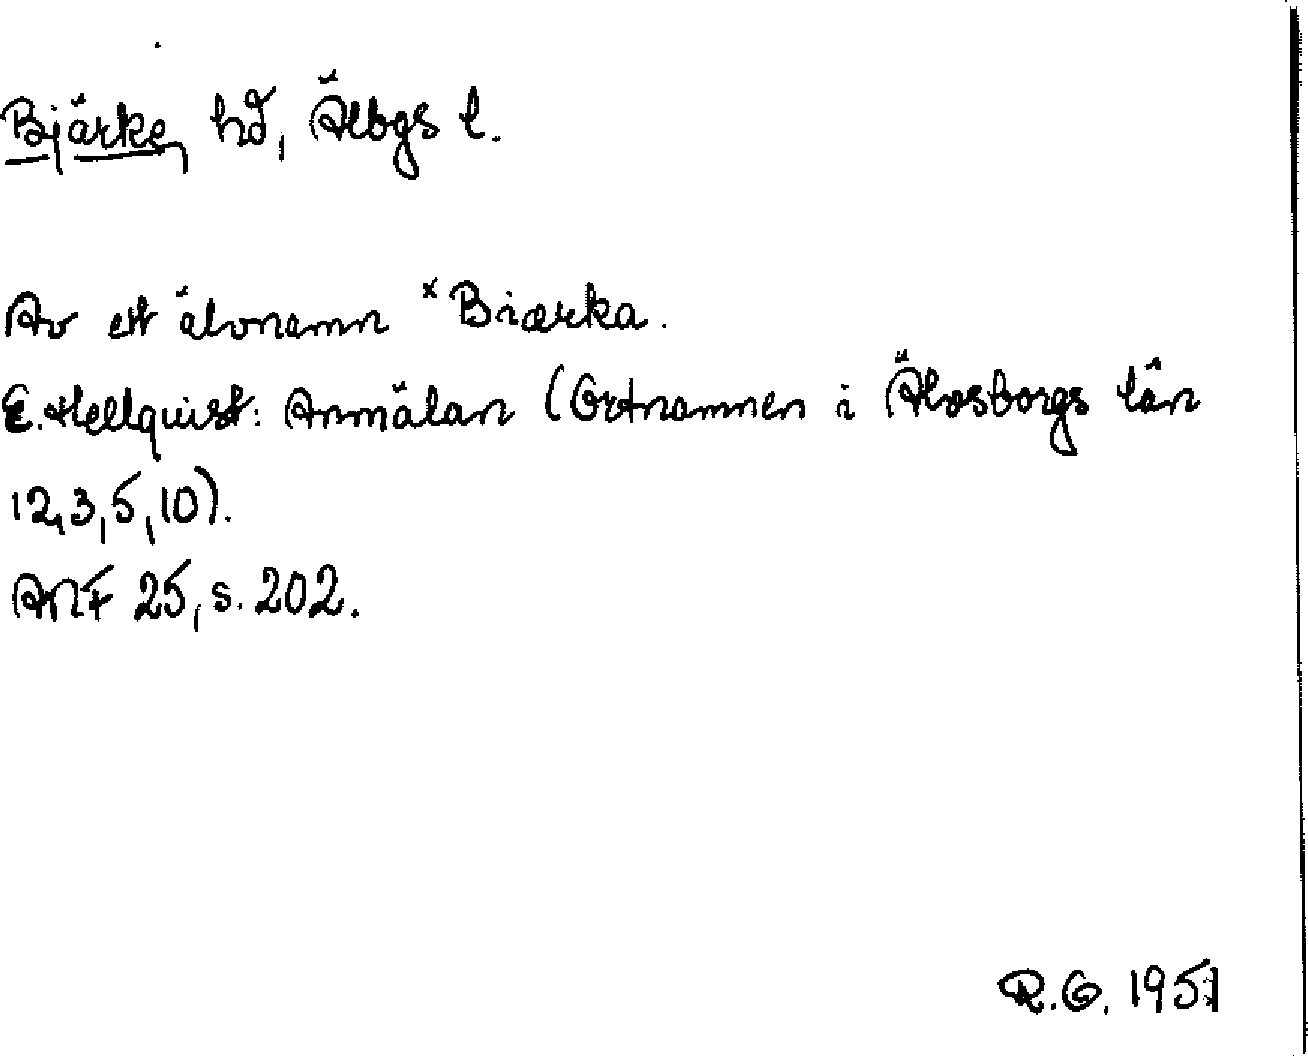 Bjärke hd, Älbgs l.
Av ett älvnamn *Biærka.
E. Hellquist: Anmälan (Ortnamnen i Älvsborgs län
12,3,5,10).
ANF 25, s. 202.
R.G. 1951